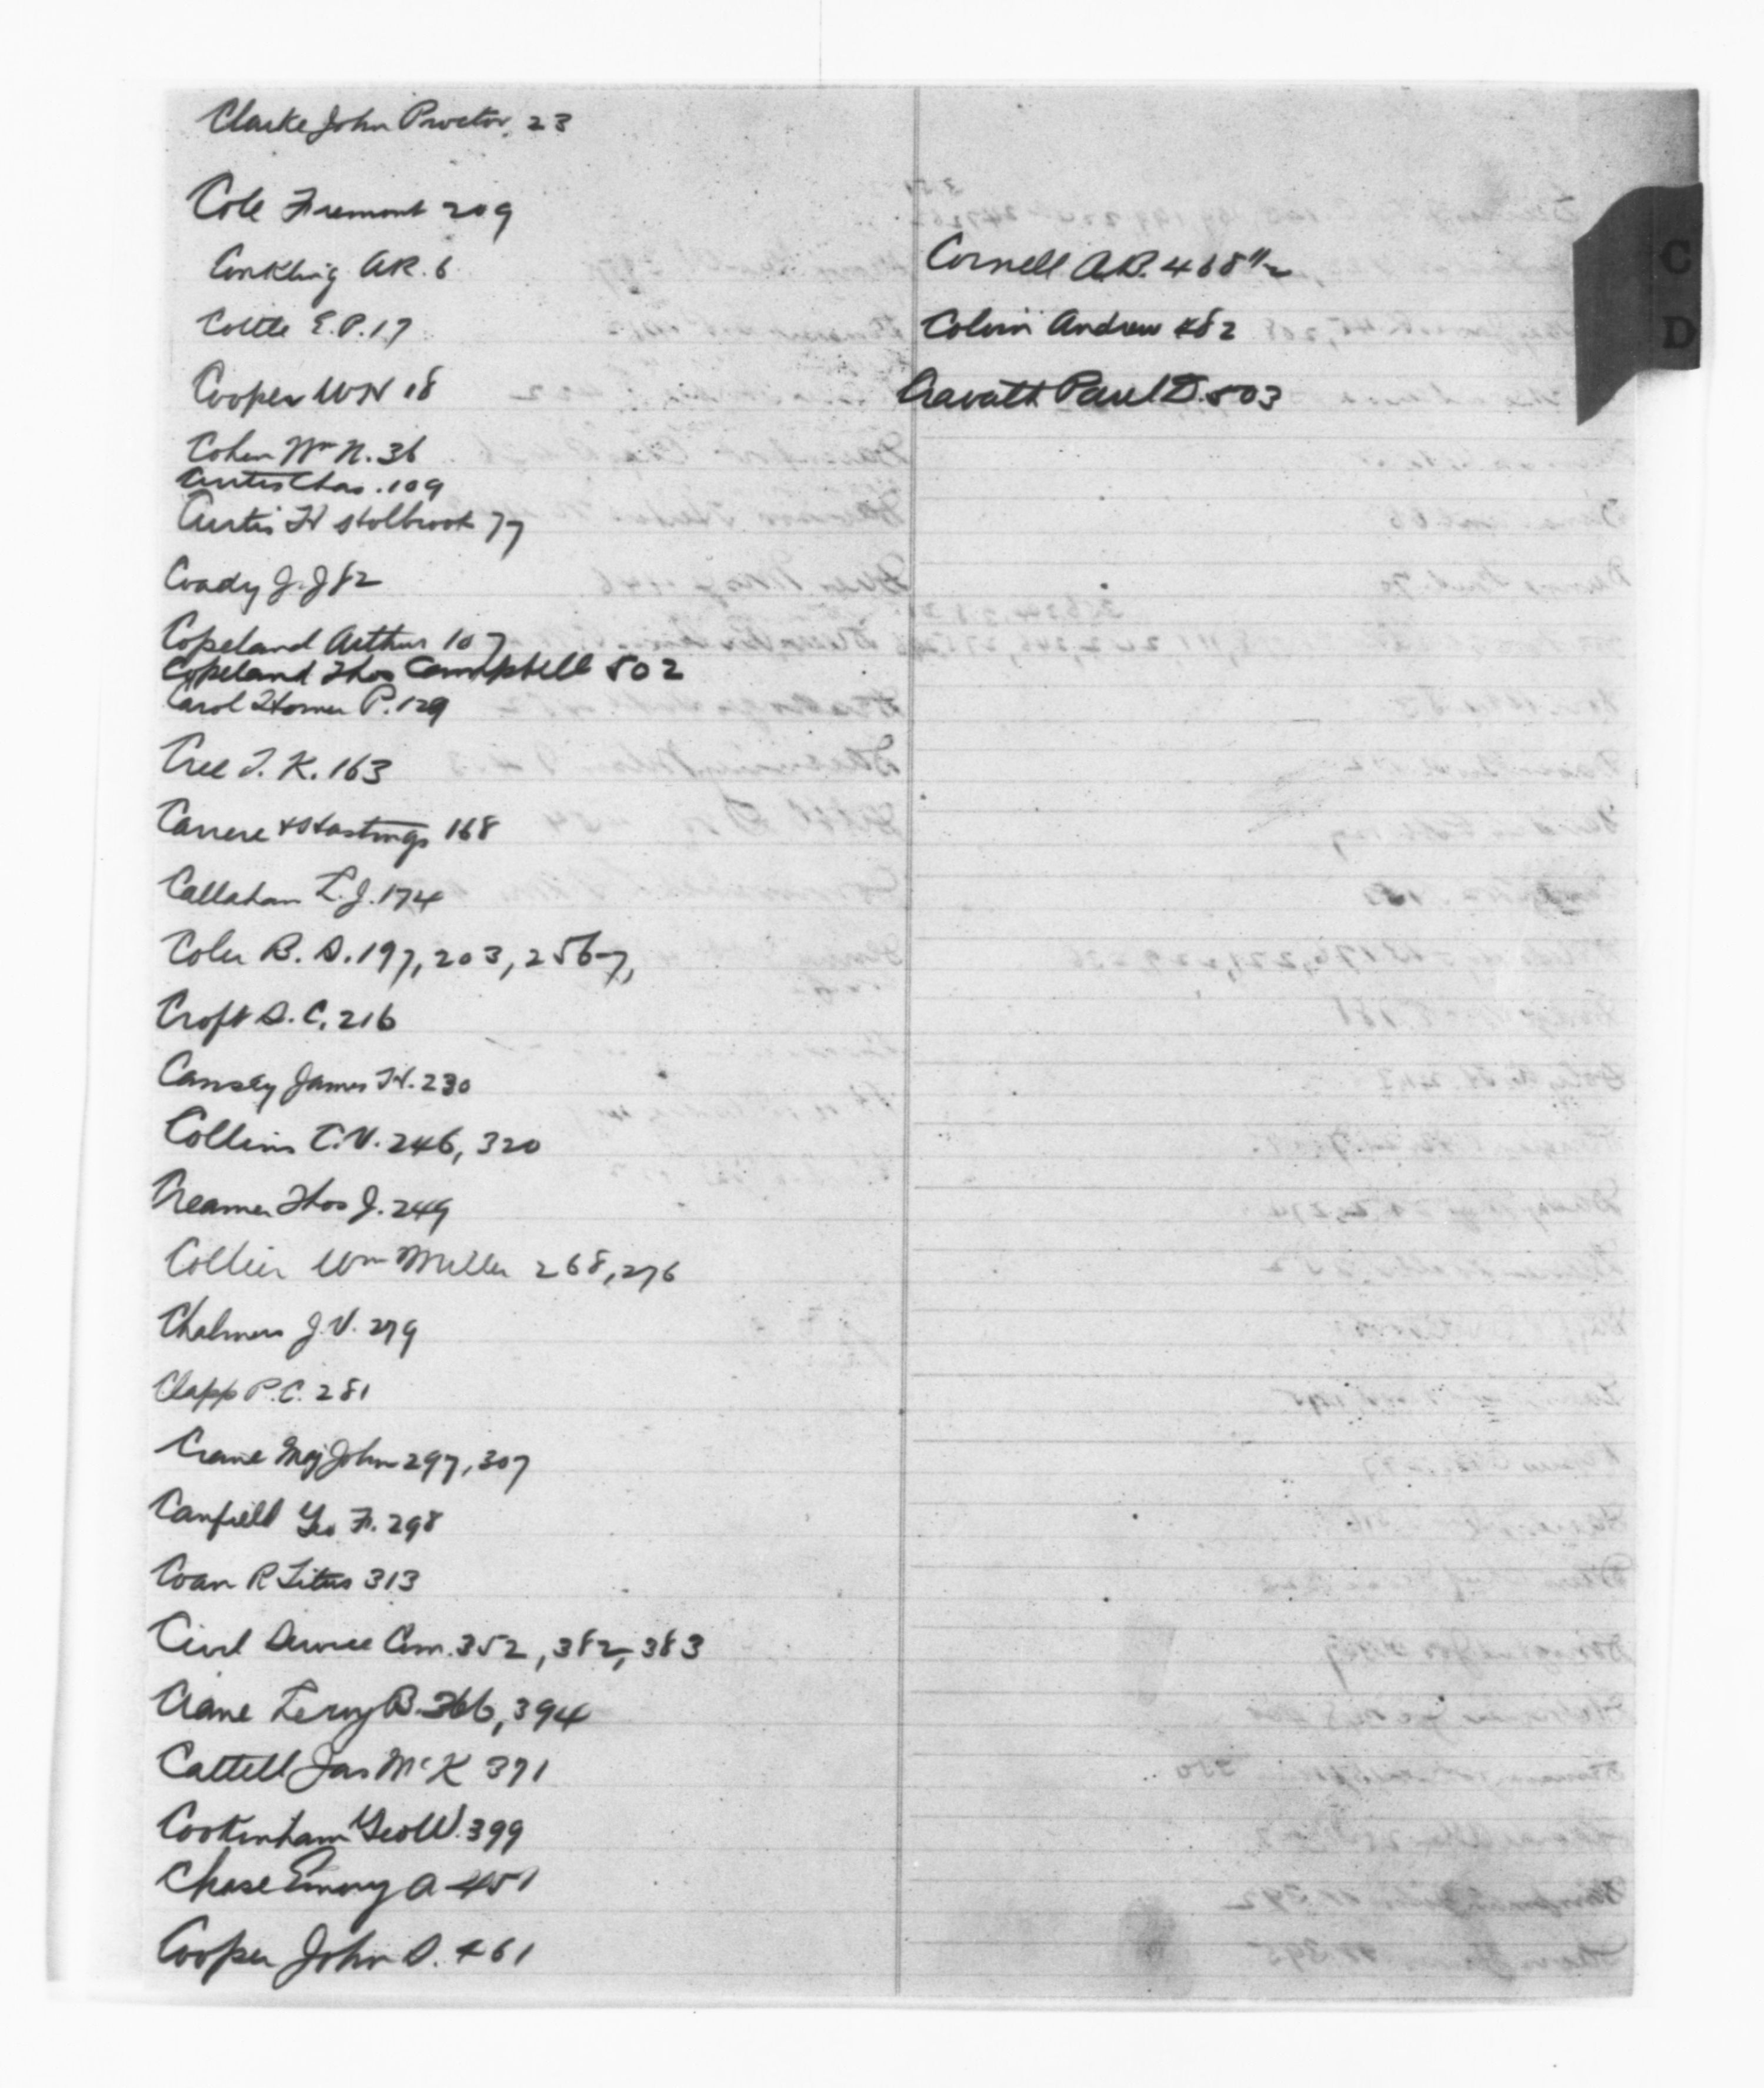 Clarke John Proctor. 23
Cole Fremont 209
Conkling A.R. 6
Cottle E.P. 17
Cooper WH 18
Cohen Wm N. 36
Curtis Chas. 109
Curtis H Holbrook 77
Coady J. J 82
Copeland Arthur 107
Copeland Thos Campbell 502
Carol Homer P. 129
Cree T. K. 163
Carrere & Hastings 168
Callahan L. J. 174
Coler B. S. 197, 203, 256-7,
Croft S. C. 216
Causey James H. 230
Collins C.V. 246, 320
Creamer Thos J. 249
Collier Wm Miller 268, 276
Chalmers J. V. 279
Clapp P. C. 281
Crane Maj John 297, 307
Canfield Geo F. 298
Coan R Titus 313
Civil Service Com. 352, 382, 383
Crane Leroy B. 366, 394
Cattell Jas McK 371
Cookinham Geo W. 399
Chase Emory A 451
Cooper John S. 461
Cornell A.B. 468 1/2
Colvin Andrew 482
Cravath Paul D. 503
C
D